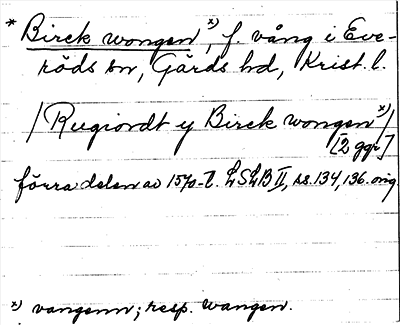 * Birck wongen x), f. vång i Eve-
röds sn, Gärds hd, Krist. l.
/ Rugiordt y Birck wongen x) /
[2 ggr]
förra delen av 1570-t. LSLB II, ss. 134, 136. orig.
x) vangenn; resp. wangen.